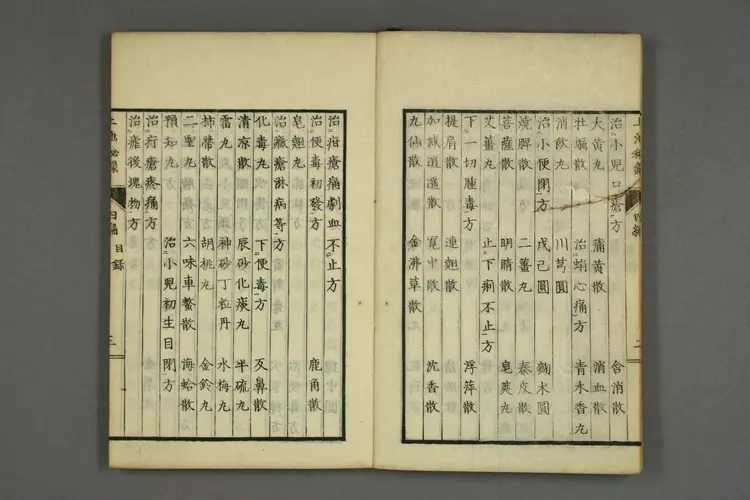 治小兒口瘡方 含消散
大黄丸 蒲黄散 消血散
牡礪散 治蛔心痛方 青木香丸
消飲丸 川芎圓
治小便閉方 戊己圓 麹朮圓
燒脾散 二薑丸 秦皮散
菩薩散 明睛散 皂莢丸
艾薑丸 止下痢不止方
下一切腫毒方 浮萍散
提肩散 連翹散
加減逍遥散 寛中散
九仙散 金沸草散 沈香散
四編
二
治疳瘡痛劇血不止方
治便毒初發方 鹿角散
皂翹丸
治癥瘡淋病等方
化毒丸 下便毒方 反鼻散
清凉散 辰砂化痰丸 半硫丸
雷丸 神砂丁粒丹 水梅丸
柿蔕散 胡桃丸 金鈴丸
二聖丸 六味車螯散 海蛤散
預知丸 治小兒初生目閉方
治疳瘡疼痛方
治癰後塊物方
四編 目録
三